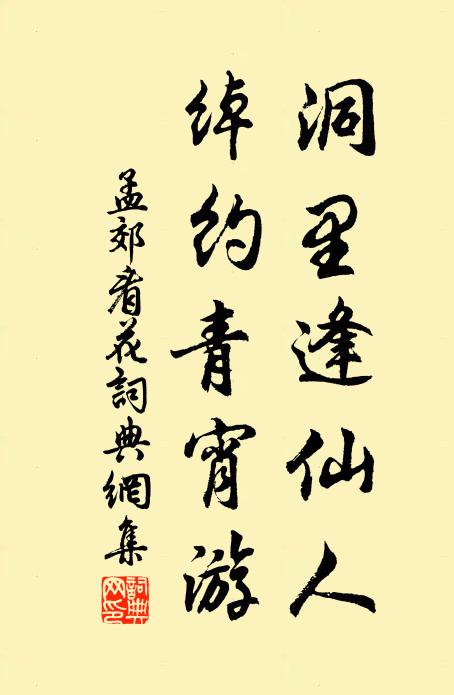 洞里逢仙人
绰约青宵游
孟郊看花詞典網集
詞典网印